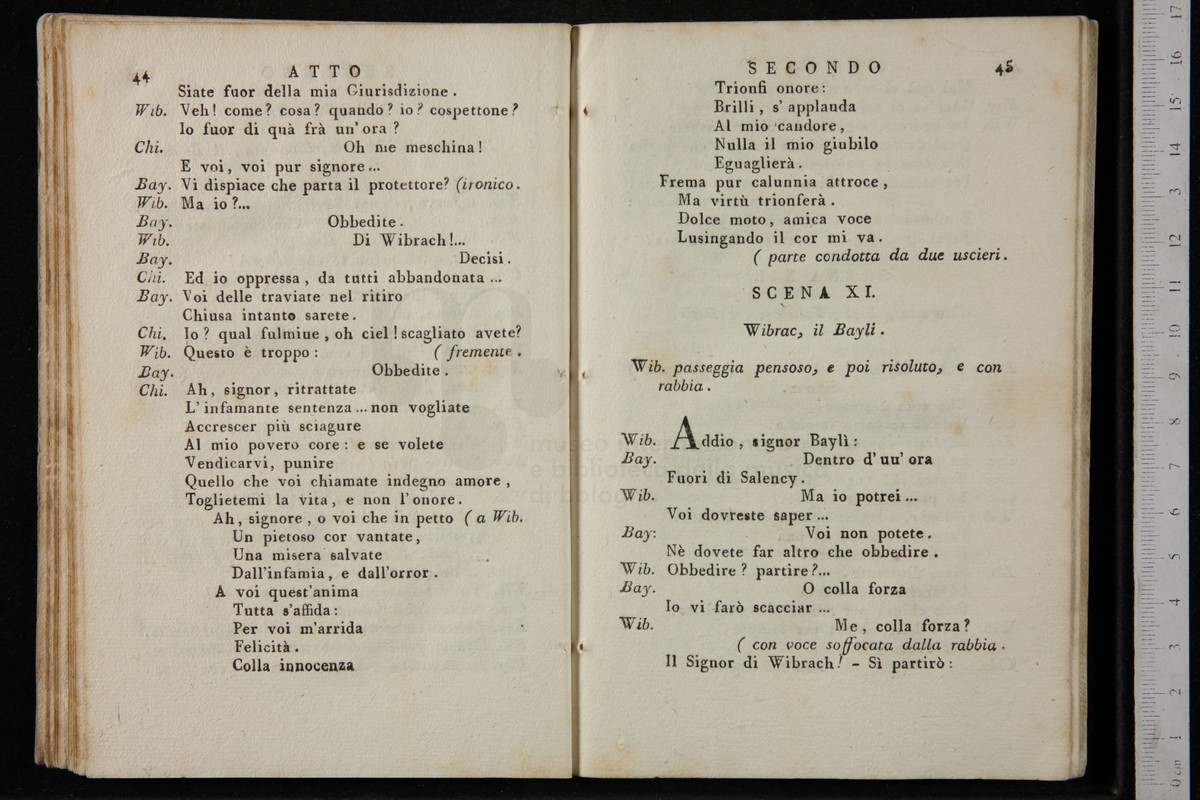 44
ATTO
Siate fuor della mia Giurisdizione.
Wib. Veh! come? cosa? quando? io? cospettone?
Io fuor di quà frà un' ora?
Chi. Oh me meschina!
E voi, voi pur signore...
Bay. Vi dispiace che parta il protettore? (ironico.
Wib. Ma io?...
Bay. Obbedite.
Wib. Di Wibrach!...
Bay. Decisi.
Chi. Ed io oppressa, da tutti abbandonata ...
Bay. Voi delle traviate nel ritiro
Chiusa intanto sarete.
Chi. Io? qual fulmine, oh ciel! scagliato avete?
Wib. Questo è troppo: (fremente.
Bay. Obbedite.
Chi. Ah, signor, ritrattate
L'infamante sentenza... non vogliate
Accrescer più sciagure
Al mio povero core: e se volete
Vendicarvi, punire
Quello che voi chiamate indegno amore,
Toglietemi la vita, e non l'onore.
Ah, signore, o voi che in petto (a Wib.
Un pietoso cor vantate,
Una misera salvate
Dall'infamia, e dall'orror.
A voi quest'anima
Tutta s'affida:
Per voi m'arrida
Felicità.
Colla innocenza
SECONDO
45
Trionfi onore:
Brilli, s' applauda
Al mio candore,
Nulla il mio giubilo
Eguaglierà.
Frema pur calunnia attroce,
Ma virtù trionferà.
Dolce moto, amica voce
Lusingando il cor mi va.
(parte condotta da due uscieri.
SCENA XI.
Wibrac, il Bayli.
Wib. passeggia pensoso, e poi risoluto, e con
rabbia.
Wib. Addio, signor Baylì:
Bay. Dentro d'un' ora
Fuori di Salency.
Wib. Ma io potrei...
Voi dovreste saper...
Bay: Voi non potete.
Nè dovete far altro che obbedire.
Wib. Obbedire? partire?...
Bay. O colla forza
Io vi farò scacciar ...
Wib. Me, colla forza?
(con voce soffocata dalla rabbia.
Il Signor di Wibrach! - Sì partirò: